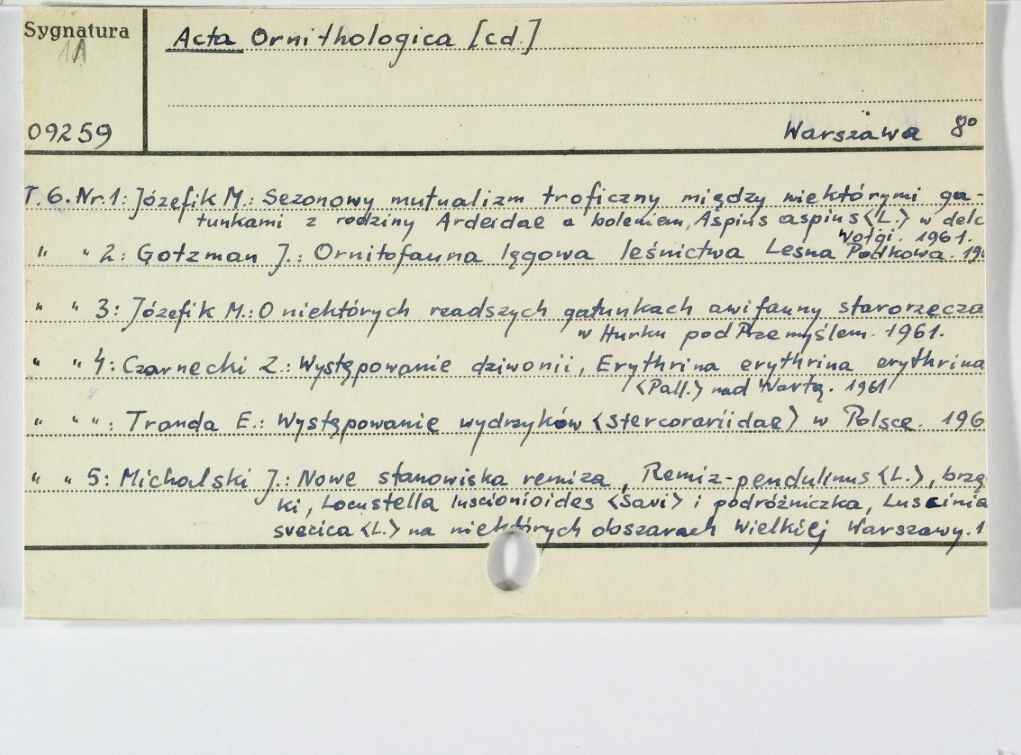 Sygnatura
1A
Acta Ornithologica [cd.]
09259
Warszawa 8°
T. 6. Nr. 1: Józefik M.: Sezonowy mutualizm troficzny między niektórymi ga-
tunkami z rodziny Ardeidae a boleniem, Aspius aspius <L.> w delc
Wołgi. 1961.
" " 2: Gotzman J.: Ornitofauna lęgowa leśnictwa Leśna Podkowa. 19
" " 3: Józefik M.: O niektórych rzadszych gatunkach awifauny starorzecza
w Hurku pod Przemyślem. 1961.
" " 4: Czarnecki Z.: Występowanie dziwonii, Erythrina erythrina erythrina
<Pall.> nad Wartą. 1961
" " ": Tranda E.: Występowanie wydrzyków <Stercorariidae> w Polsce. 196
" " 5: Michalski J.: Nowe stanowiska remiza, Remiz-pendulinus <L.>, brzę
ki, Locustella luscionioides <Savi> i podróżniczka, Luscinia
svecica <L.> na niektórych obszarach Wielkiej Warszawy. 1